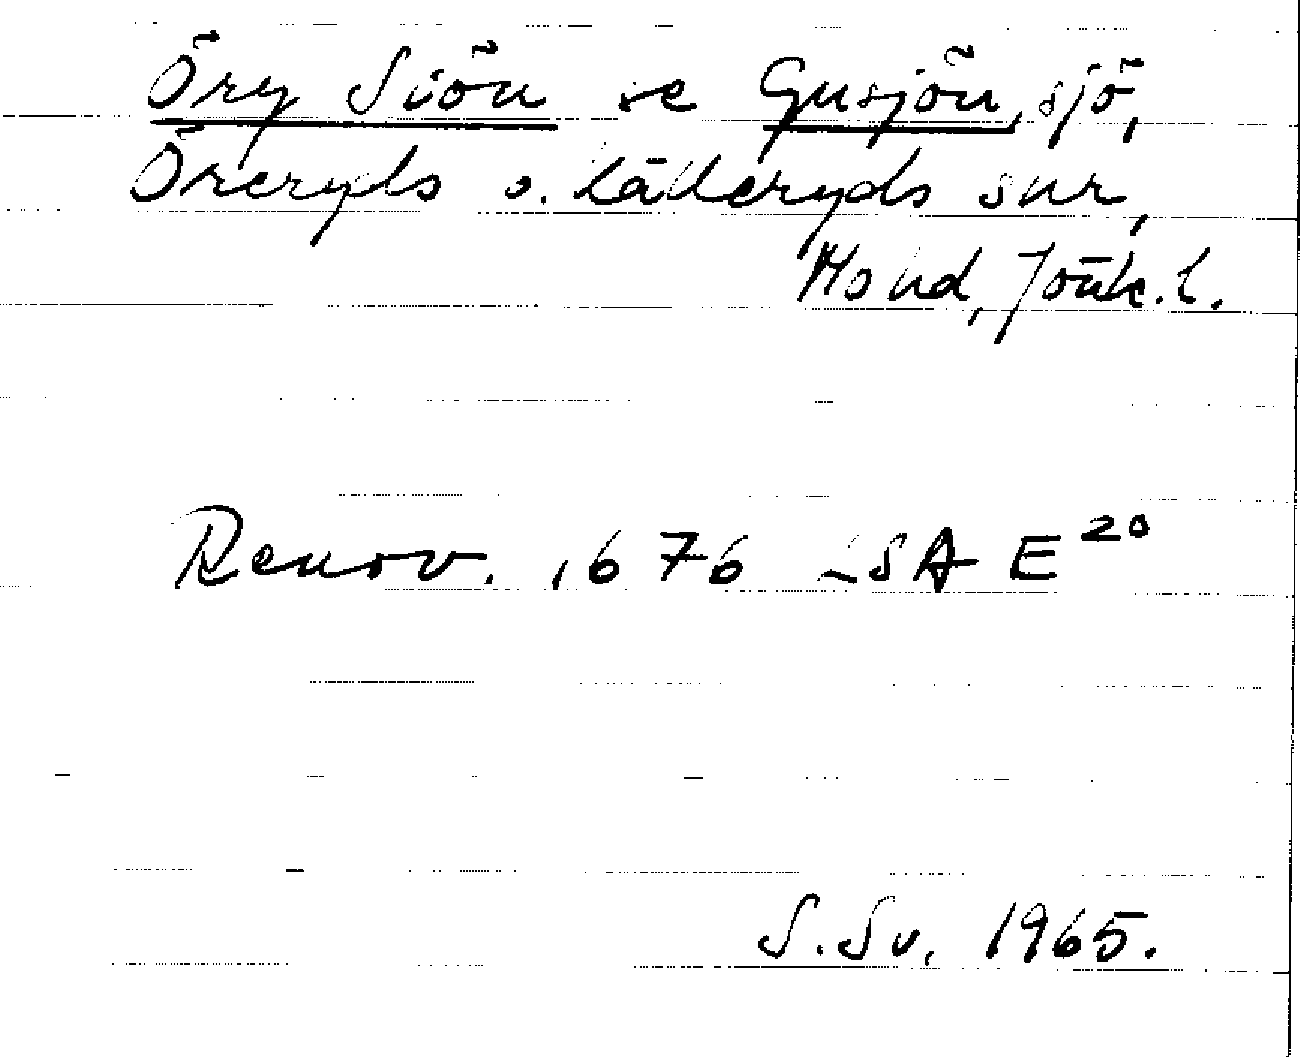 Öry Siön se Gusjön, sjö,
Öreryds o. Källeryds snr,
Mo hd, Jönk. l.
Renov. 1676 LSA E 20
S. Sv. 1965.